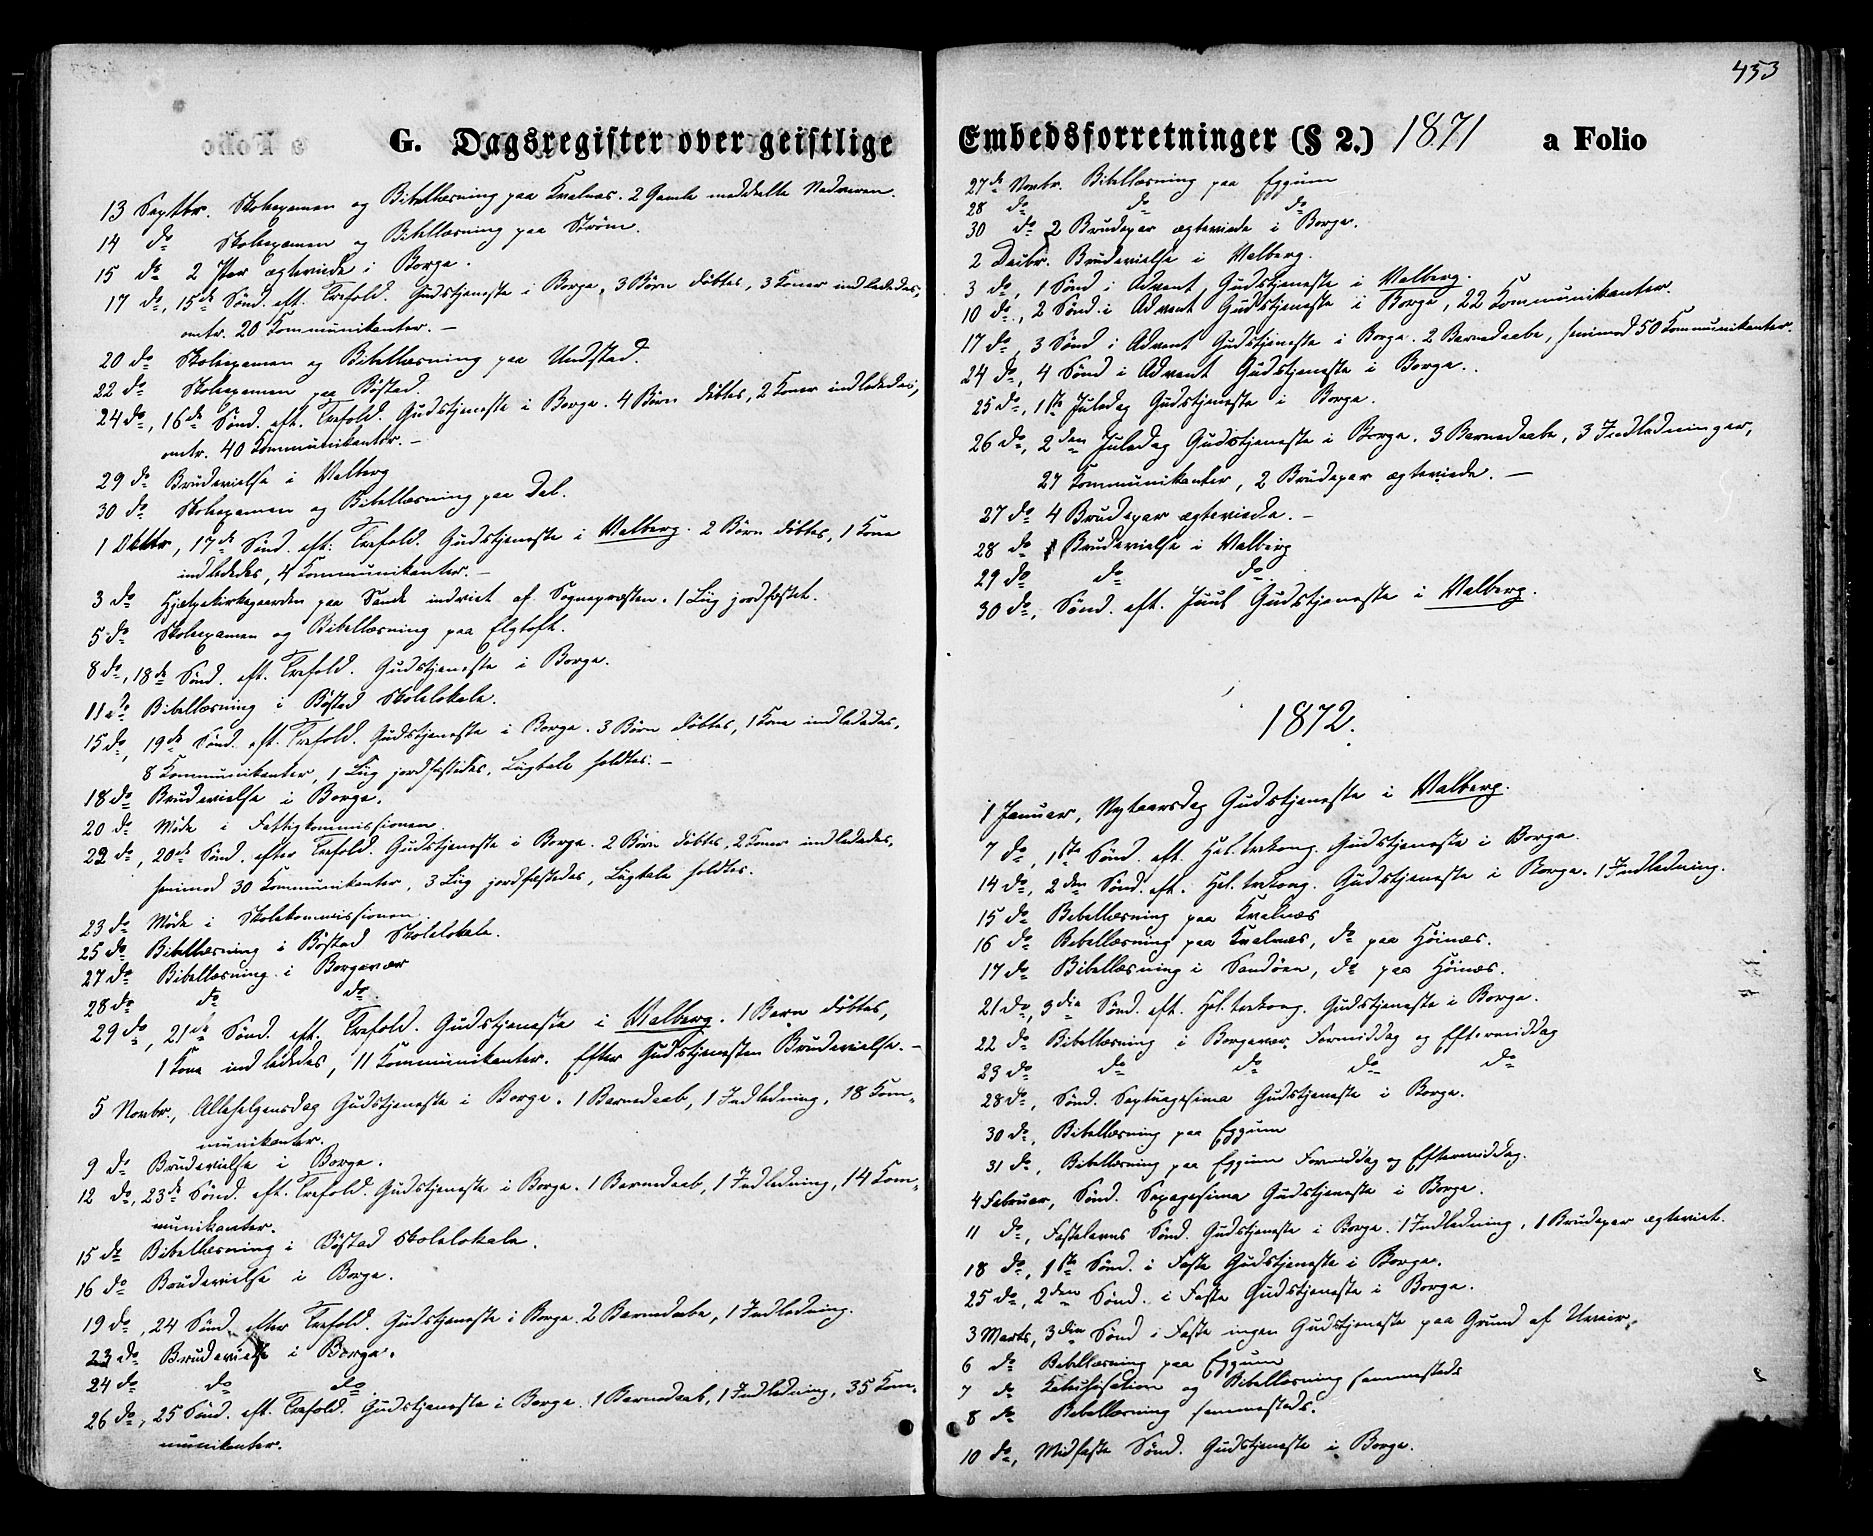 453
G. Dagsregister over geistlige Embedsforretninger (§ 2.) 1871 a Folio
13 Septbr. Skoleexamen og Bibellæsning paa Kvalnæs. 2 Gamle meddelte Nadveren.
14 do Skoleexamen og Bibellæsning paa Strøm.
15 do 2 Par ægteviede i Borge.
17 do, 15de Sønd. eft. Trefold. Gudstjeneste i Borge, 3 Børn døbtes, 3 Koner indlededes,
omtr. 20 Kommunikanter. –
20 do Skoleexamen og Bibellæsning paa Undstad.
22 do Skoleexamen paa Bøstad.
24 do, 16de Sønd. eft. Trefold. Gudstjeneste i Borge. 4 Børn døbtes, 2 Koner indlededes,
omtr. 40 Kommunikanter. –
29 do Brudevielse i Valberg
30 do Skoleexamen og Bibellæsning paa Dal.
1 Oktbr, 17de Sønd. eft. Trefold. Gudstjeneste i Valberg. 2 Børn døbtes, 1 Kone
indlededes, 4 Kommunikanter. –
3 do Hjælpekirkegaarden paa Sande indviet af Sognepræsten. 1 Liig jordfæstet.
5 do Skoleexamen og Bibellæsning paa Elgtoft.
8 do, 18de Sønd. eft. Trefold. Gudstjeneste i Borge.
11 do Bibellæsning i Bøstad Skolelokale.
15 do, 19de Sønd. eft. Trefold. Gudstjeneste i Borge. 3 Børn døbtes, 1 Kone indlededes,
8 Kommunikanter, 1 Liig jordfæstedes, Liigtale holdtes. –
18 do Brudevielse i Borge.
20 do Møde i Fattigkommissionen.
22 do, 20de Sønd. efter Trefold. Gudstjeneste i Borge. 2 Børn døbtes, 2 Koner indlededes,
henimod 30 Kommunikanter, 3 Liig jordfæstedes, Liigtale holdtes.
23 do Møde i Skolekommissionen.
25 do Bibellæsning i Bøstad Skolelokale.
27 do Bibellæsning i Borgevær
28 do do do
29 do, 21de Sønd. eft. Trefold. Gudstjeneste i Valberg. 1 Barn døbtes,
1 Kone indlededes, 11 Kommunikanter. Efter Gudstjenesten Brudevielse. –
5 Novbr., Allehelgensdag Gudstjeneste i Borge. 1 Barnedaab, 1 Indledning, 18 Kom-
munikanter.
9 do Brudevielse i Borge.
12 do, 23de Sønd. eft. Trefold. Gudstjeneste i Borge. 1 Barnedaab, 1 Indledning, 14 Kom-
munikanter.
15 do Bibellæsning i Bøstad Skolelokale.
16 do Brudevielse i Borge.
19 do, 24 Sønd. efter Trefold. Gudstjeneste i Borge. 2 Barnedaabe, 1 Indledning.
23 do Brudevielse i Borge.
24 do do do
26 do, 25 Sønd. eft. Trefold. Gudstjeneste i Borge. 1 Barnedaab, 1 Indledning, 35 Kom-
munikanter.
27de Novbr. Bibellæsning paa Eggum
28 do do do
30 do 2 Brudepar ægteviede i Borge.
2 Decbr. Brudevielse i Valberg.
3 do, 1 Sønd i Advent, Gudstjeneste i Valberg.
10 do, 2 Sønd. i Advent Gudstjeneste i Borge, 22 Kommunikanter.
17 do, 3 Sønd i Advent Gudstjeneste i Borge. 2 Barnedaabe, henimod 50 Kommunikanter.
24 do, 4 Sønd i Advent Gudstjeneste i Borge.
25 do, 1ste Juledag Gudstjeneste i Borge.
26 do, 2den Juledag Gudstjeneste i Borge. 3 Barnedaabe, 3 Indledninger,
27 Kommunikanter, 2 Brudepar ægteviede. –
27 do 4 Brudepar ægteviede. –
28 do Brudevielse i Valberg
29 do do do
30 do, Sønd. eft. Juul Gudstjeneste i Valberg.
1872.
1 Januar, Nytaarsdag Gudstjeneste i Valberg.
7 do, 1ste Sønd. eft. Hel. trekong. Gudstjeneste i Borge.
14 do, 2den Sønd. eft. Hel. trekong. Gudstjeneste i Borge. 1 Indledning.
15 do Bibellæsning paa Kvalnæs
16 do Bibellæsning paa Kvalnæs, do paa Høinæs.
17 do Bibellæsning i Sandøen, do paa Høinæs.
21 do, 3die Sønd. eft. Hel. trekong. Gudstjeneste i Borge.
22 do Bibellæsning i Borgevær Formiddag og Eftermiddag
23 do do do do do
28 do, Sønd. Septuagesima Gudstjeneste i Borge.
30 do, Bibellæsning paa Eggum
31 do, Bibellæsning paa Eggum Formiddag og Eftermiddag.
4 Februar, Sønd. Sexagesima Gudstjeneste i Borge.
11 do, Fastelavns Sønd. Gudstjeneste i Borge. 1 Indledning, 1 Brudepar ægteviet.
18 do, 1ste Sønd. i Faste Gudstjeneste i Borge.
25 do, 2den Sønd. i Faste Gudstjeneste i Borge.
3 Marts, 3die Sønd i Faste ingen Gudstjeneste paa Grund af Uveir.
6 do Bibellæsning paa Eggum
7 do Katechisation og Bibellæsning sammesteds
8 do Bibellæsning sammesteds.
10 do, Midfaste Sønd. Gudstjeneste i Borge.